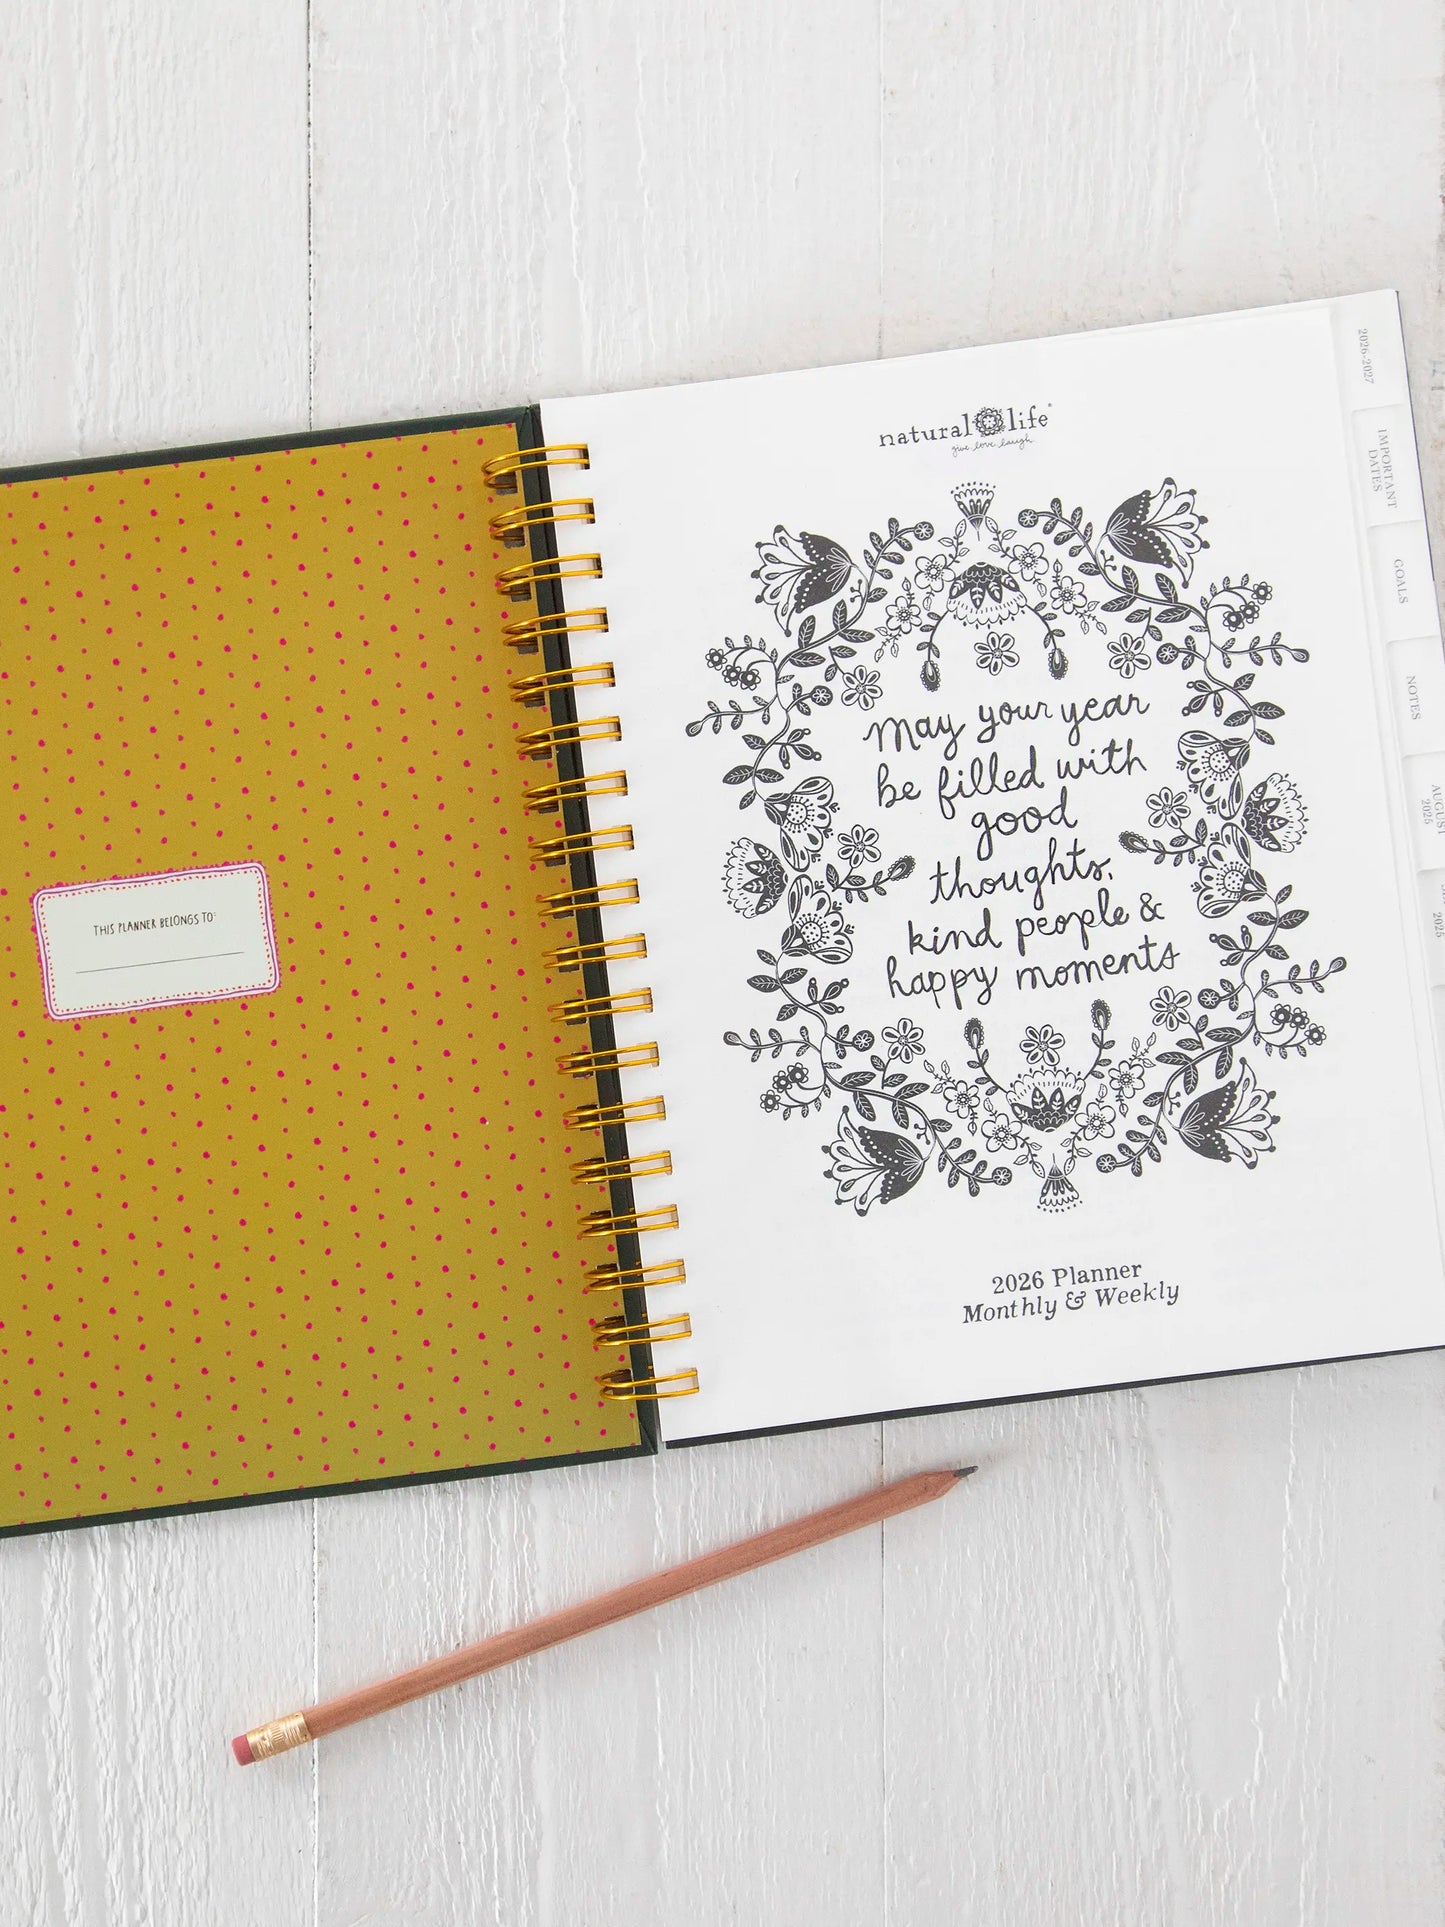 THIS PLANNER BELONGS TO:
natural life®
give love laugh
May your year
be filled with
good
thoughts,
kind people &
happy moments
2026 Planner
Monthly & Weekly
2026-2027
IMPORTANT
DATES
GOALS
NOTES
AUGUST
2025
2025